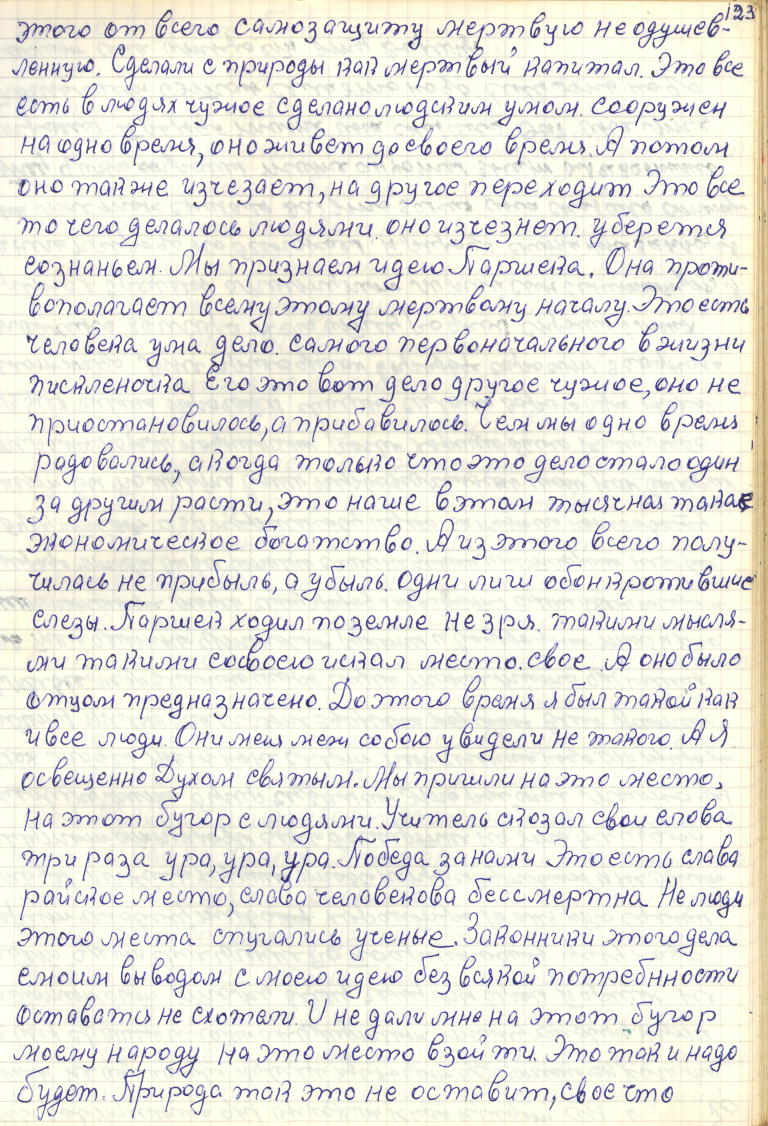 123
этого от всего самозащиту мертвую неодушев-
ленную. Сделали с природы как мертвый капитал. Это все
есть в людях чужое сделано людским умом. сооружен
на одно время, оно живет до своего время. А потом
оно также изчезает, на другое переходит Это все
то чего делалось людями. оно изчезнет. уберется
сознаньем. Мы признаем идею Паршека. Она проти-
вополагает всему этому мертвому началу. Это есть
человека ума дело. самого первоначального в жизни
пискленочка Его это вот дело другое чужое, оно не
приостановилось, а прибавилось. Чем мы одно время
радовались, а когда только что это дело стало один
за другим расти, это наше в этом тысячная такая
экономическое богатство. А из этого всего полу-
чилась не прибыль, а убыль. одни лиш обонкротившие
слезы. Паршек ходил по земле не зря. такими мысля-
ми такими со своею искал место. свое А оно было
отцом предназначено. До этого время я был такой как
и все люди. Они меня меж собою увидели не такого. А я
освещенно Духом святым. Мы пришли на это место,
на этот бугор с людями. Учитель скозал свои слова
три раза ура, ура, ура. Победа за нами Это есть слава
райское место, слава человекова бессмертна Не люди
этого места спугались ученые. Законники этого дела
с моим выводом с моею идею без всякой потребнности
оставатся не схотели. И не дали мне на этот бугор
моему народу на это место взойти. Это так и надо
будет. Природа так это не оставит, свое что